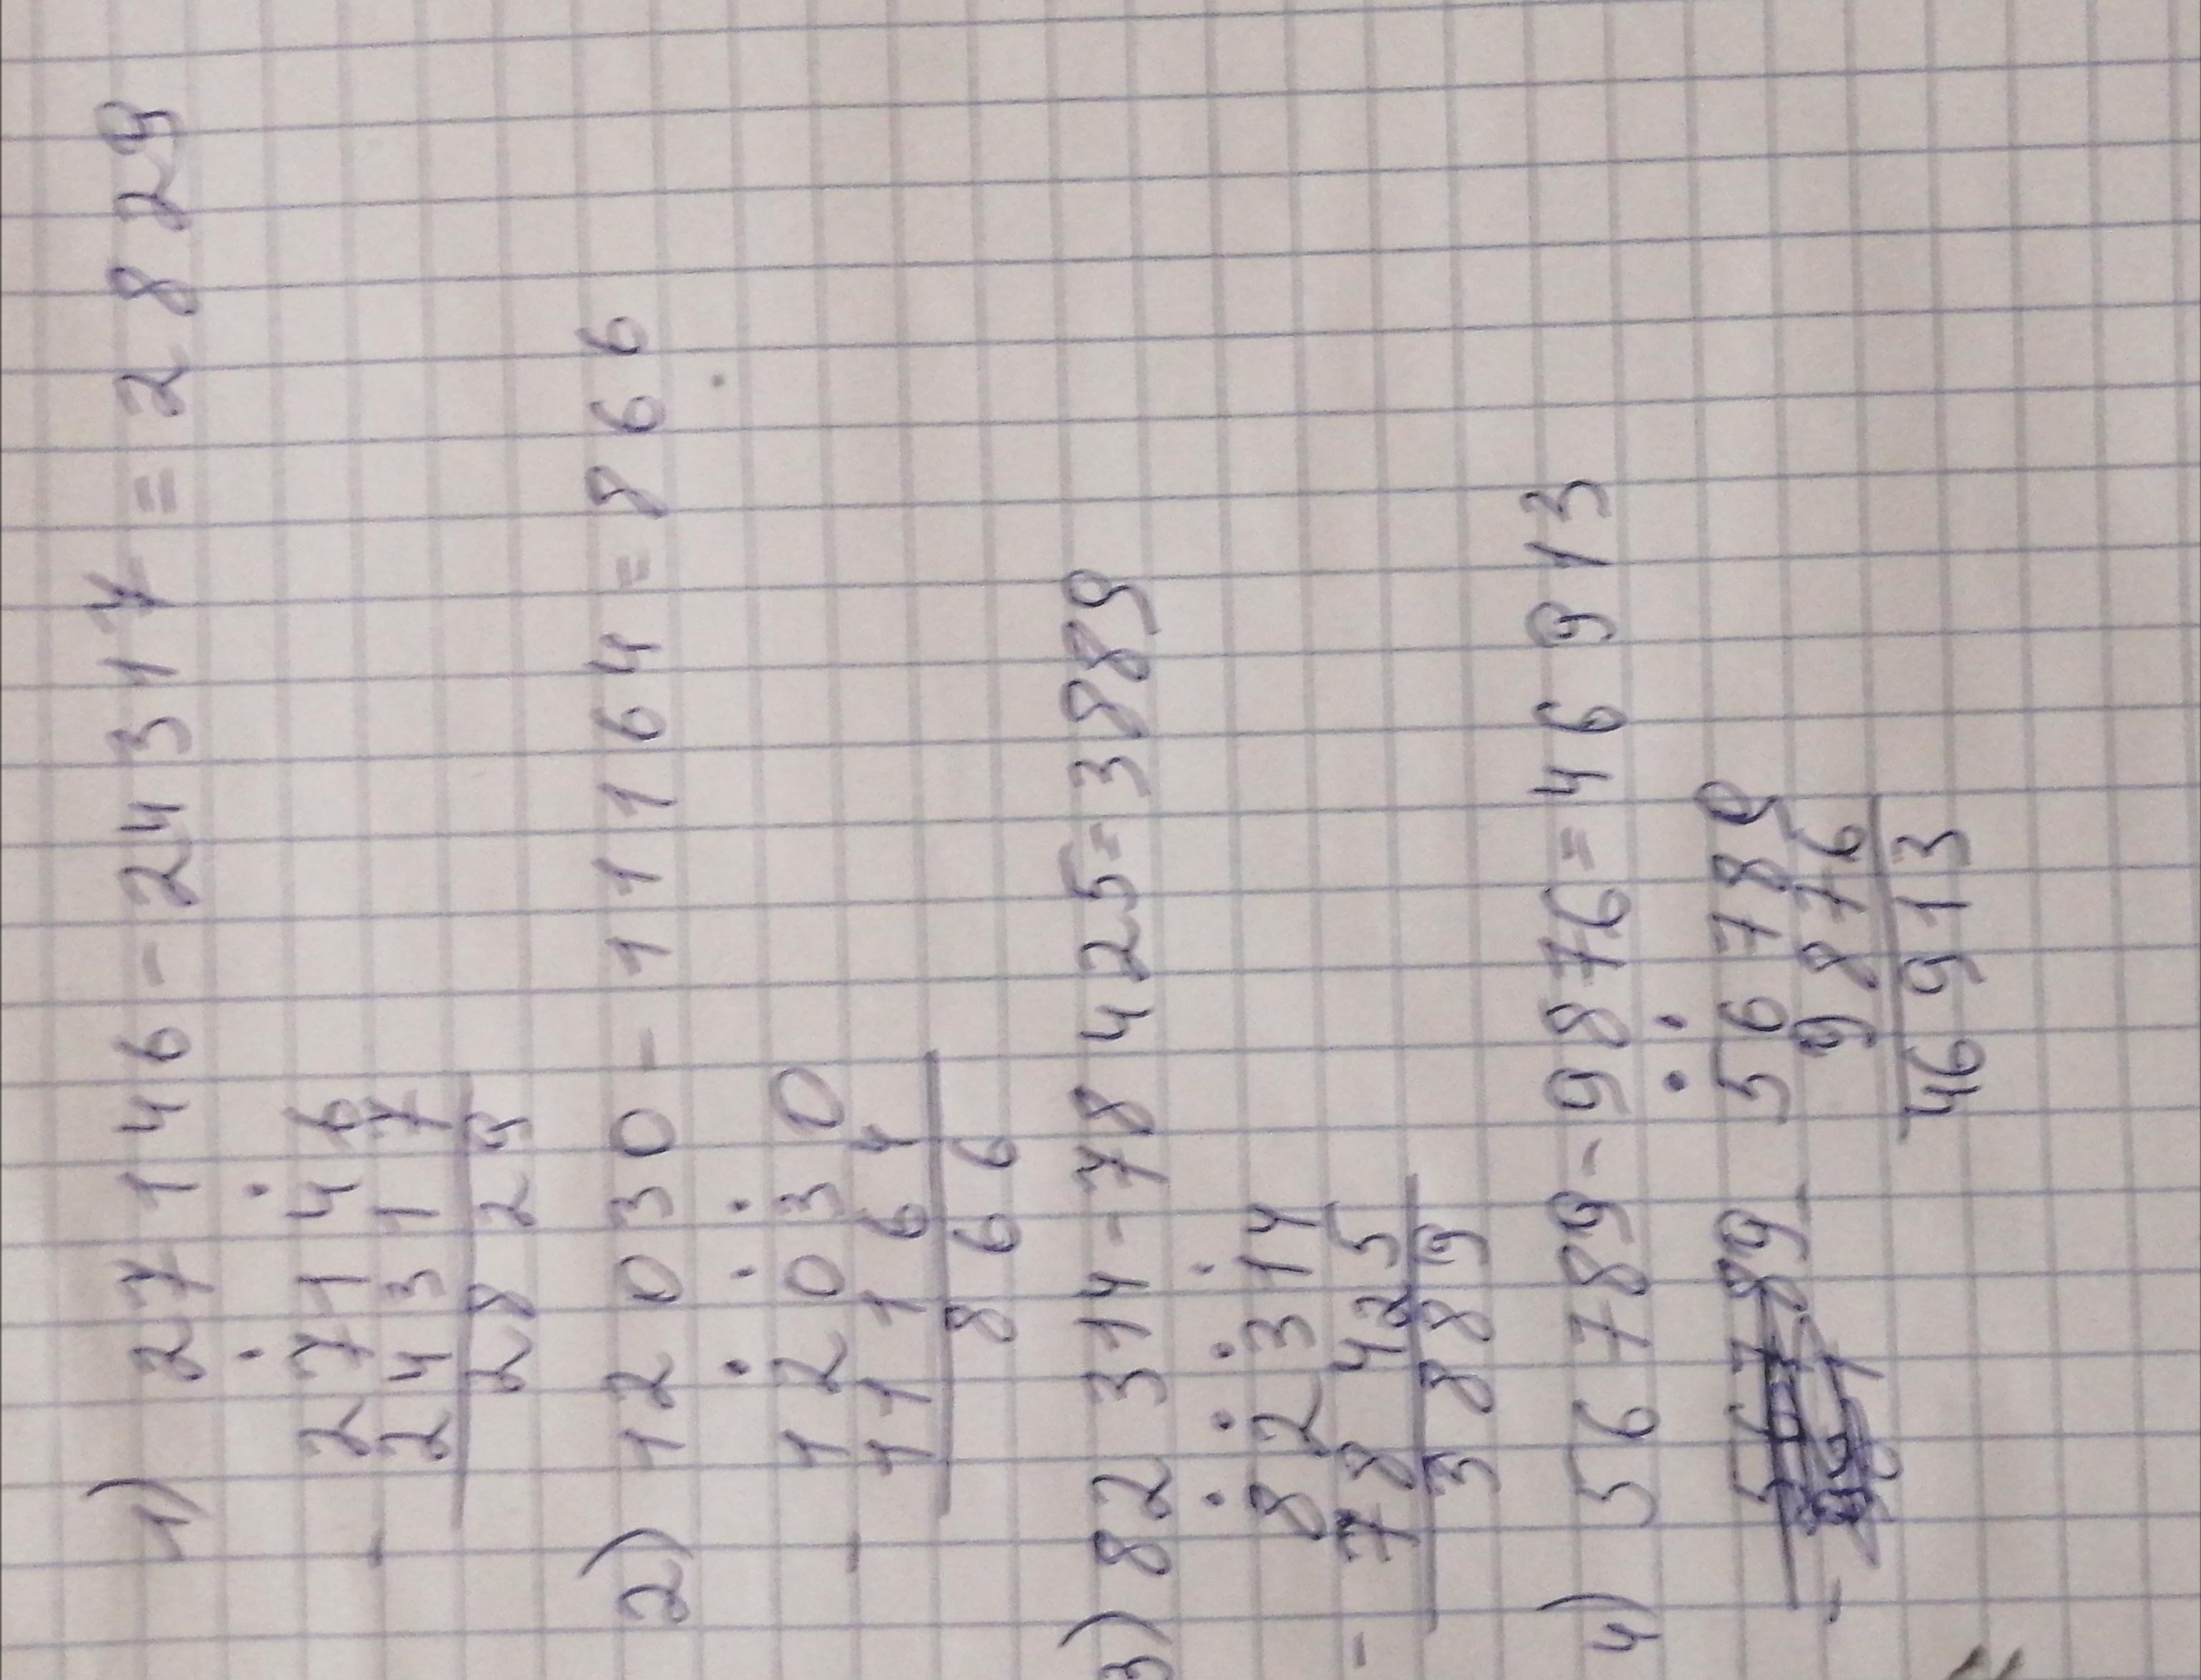 1) 27 1 46 - 24 3 17 = 2 8 2 9
27146
- 24317
28 29
2) 12 0 30 - 11 1 64 = 8 6 6
12030
- 11164
8 6 6
3) 82 314 - 78 425 = 3889
82314
- 78425
3889
4) 56 789 - 9876 = 46 9 13
56789
- 9876
46913